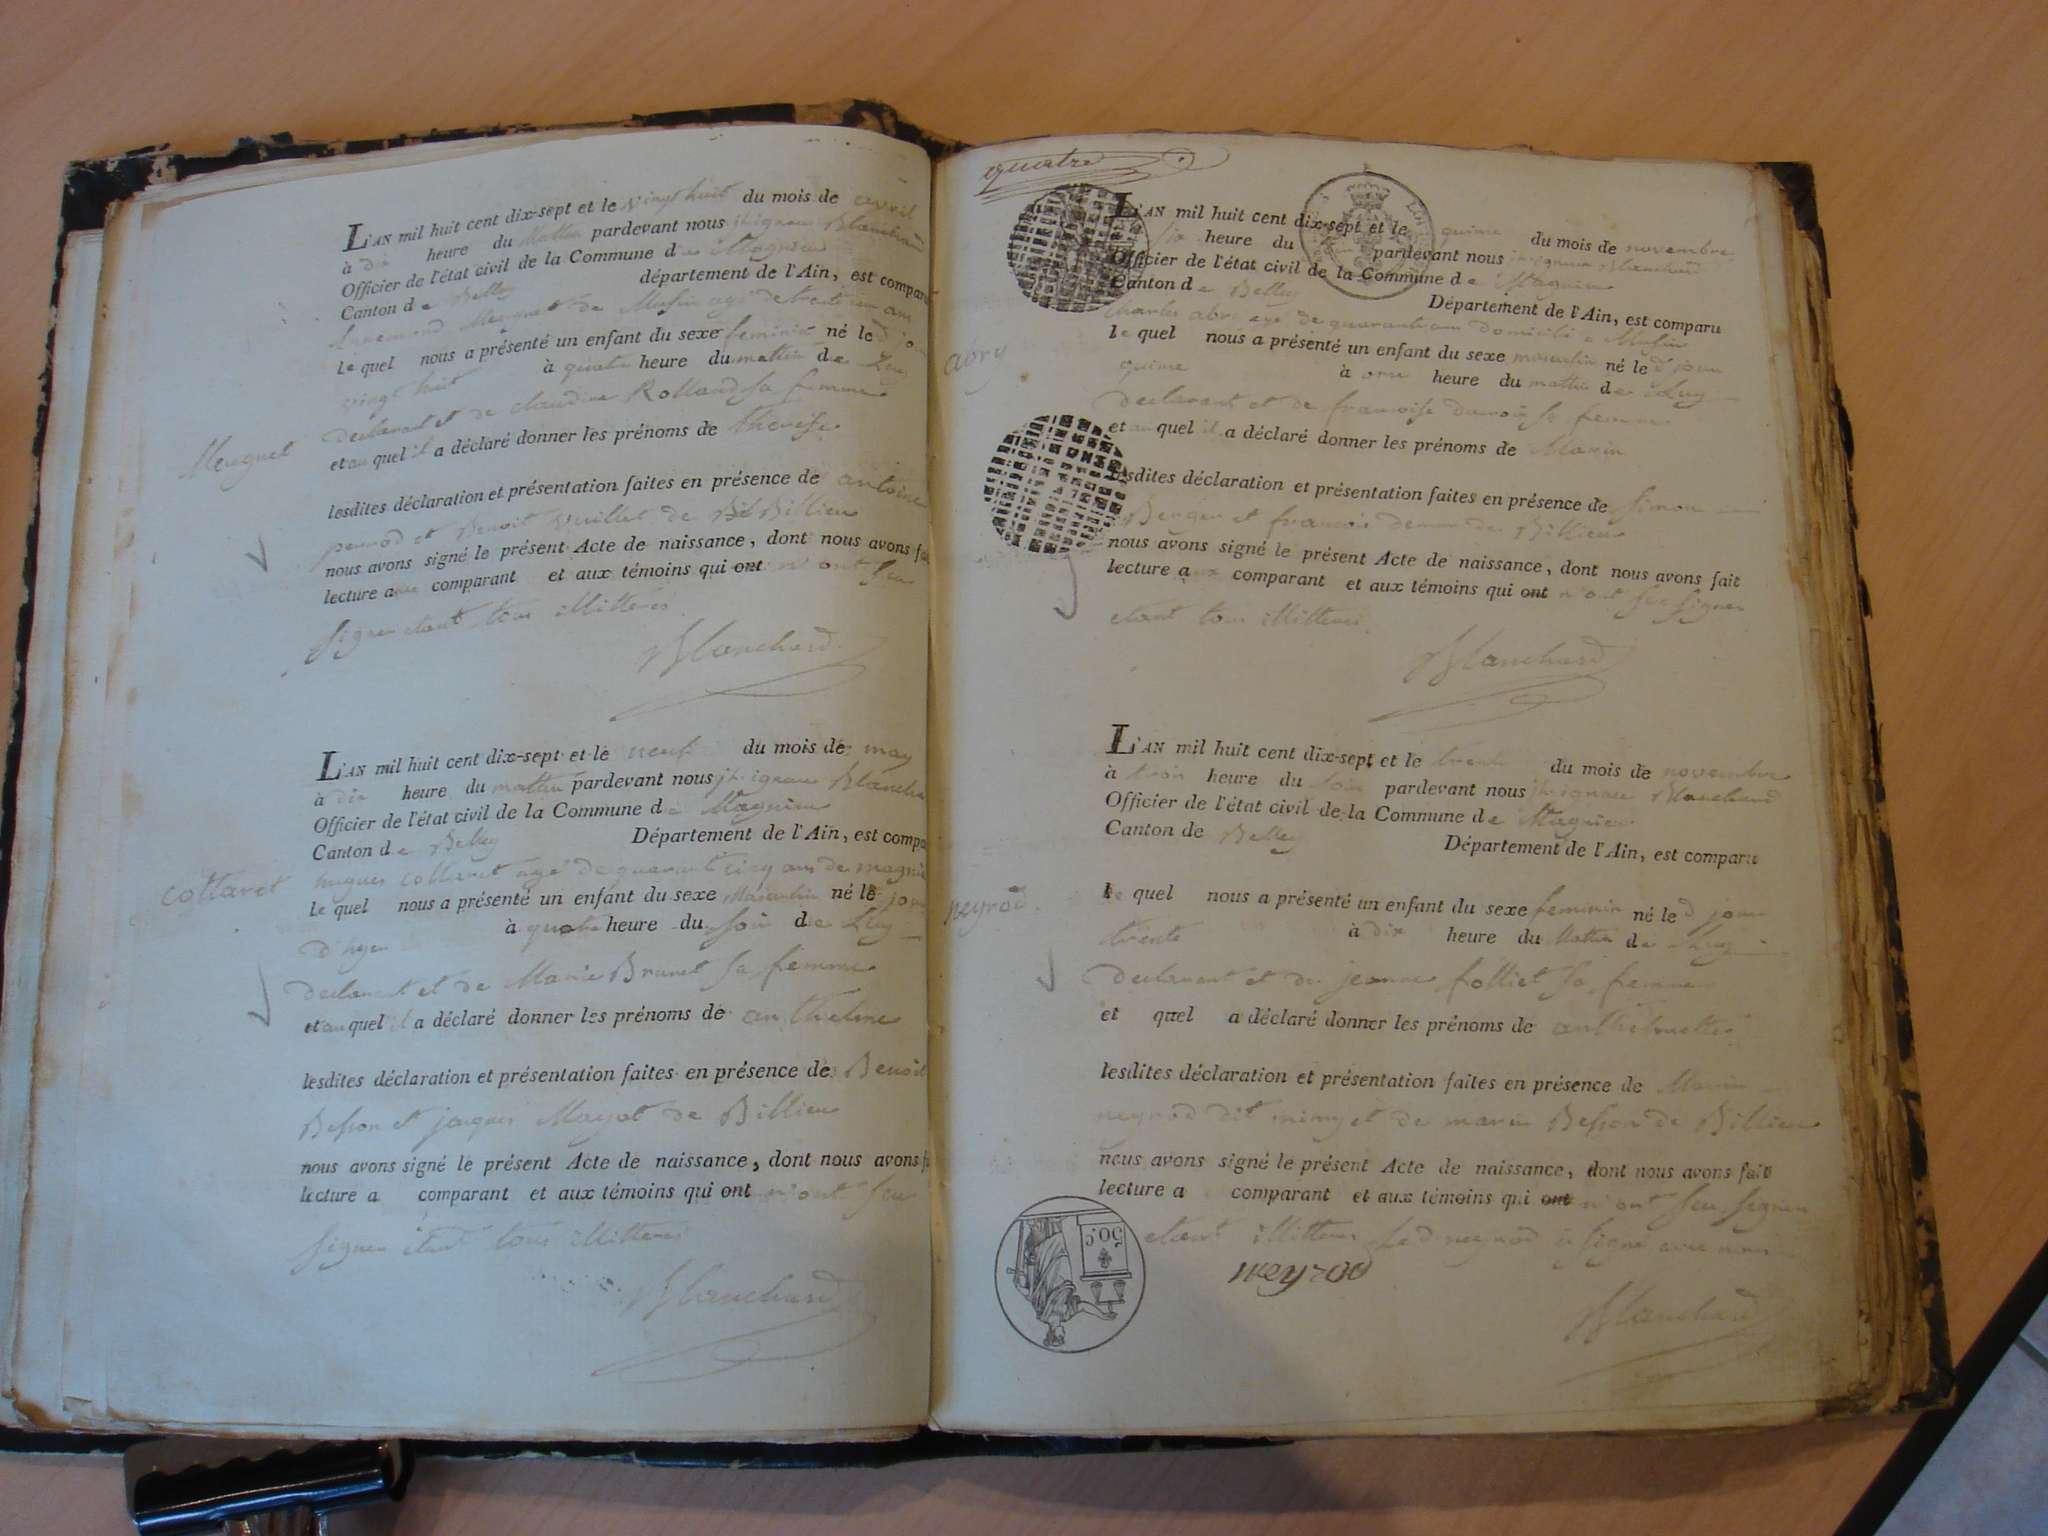 L'AN mil huit cent dix-sept et le vingt huit du mois de avril
à dix heure du Mattin pardevant nous jh ignace Blanchard
Officier de l'état civil de la Commune de Magnieu
Canton de Belley département de l'Ain, est comparu
Mugnet de Musin agé de trente un ans
le quel nous a présenté un enfant du sexe feminin né le d jour
vingt huit à quatre heure du mattin de Luy
declarant et de claudine Rolland sa femme
et au quel il a déclaré donner les prénoms de therese
Meugnet
lesdites déclaration et présentation faites en présence de antoine
et Benoit vuillet de Billieu
nous avons signé le présent Acte de naissance, dont nous avons fai
lecture au comparant et aux témoins qui ont n'ont seu
signer etant tous illitterés
Blanchard
L'AN mil huit cent dix-sept et le neuf du mois de may
à dix heure du mattin pardevant nous jh ignace Blancha
Officier de l'état civil de la Commune de Magnieu
Canton de Belley Département de l'Ain, est compa
hugues collaret agé de quarant cinq ans de magnie
collaret
le quel nous a présenté un enfant du sexe Masculin né le jour
d'hyer à quatre heure du soir de Luy
declarant et de Marie Brunet sa femme
et au quel il a déclaré donner les prénoms de anthelme
lesdites déclaration et présentation faites en présence de Benoit
Besson et jaques Mayot de Billieu
nous avons signé le présent Acte de naissance, dont nous avons f
lecture a comparant et aux témoins qui ont n'ont seu
signer étant tous illitterés
Blanchard
quatre
L'AN mil huit cent dix-sept et le quinze du mois de novembre
à six heure du pardevant nous jh ignace Blanchard
Officier de l'état civil de la Commune de Magnieu
Canton de Belley Département de l'Ain, est comparu
Charles abry agé de quarante domicilié a Musin
abry
le quel nous a présenté un enfant du sexe masculin né le d jour
quinze à onze heure du mattin de Luy
declarant et de francoise sa femme
et au quel il a déclaré donner les prénoms de Marin
lesdites déclaration et présentation faites en présence de Simon
Berger et francois de Billieu
nous avons signé le présent Acte de naissance, dont nous avons fait
lecture aux comparant et aux témoins qui ont n'ont seu signer
etant tous illitterés
Blanchard
L'AN mil huit cent dix-sept et le trente du mois de novembre
à trois heure du soir pardevant nous jh ignace Blanchard
Officier de l'état civil de la Commune de Magnieu
Canton de Belley Département de l'Ain, est comparu
neyrod
le quel nous a présenté un enfant du sexe feminin né le d jour
trente à dix heure du Mattin de Luy
declarant et de jeanne folliet sa femme
et quel a déclaré donner les prénoms de anthelmette
lesdites déclaration et présentation faites en présence de Marin
neyrod dit mimy et de marin Besson de Billieu
nous avons signé le présent Acte de naissance, dont nous avons fait
lecture a comparant et aux témoins qui ont n'ont seu signer
etant illitteres Le d neyrod a signé avec nous
neyrod
50 c.
Blanchard